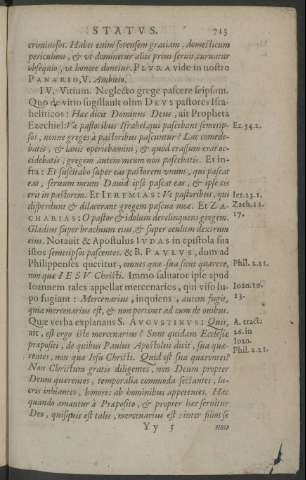 STATVS. 713
criminosos. Habet enim forensem gratiam, domesticum
periculum, & vt dominetur aliis priùs seruit, curuatur
obsequio, vt honore donetur. PLVRA vide in nostro
PANARIO, V. Ambitio.
IV. Vitium. Neglecto grege pascere seipsum.
Quo de vitio sugillauit olim DEVS pastores Israe-
heliticos: Hæc dicit Dominus Deus, ait Propheta
Ezechiel: Væ pastoribus Israhel, qui pascebant semetip-
sos, nonne greges à pastoribus pascuntur? Lac comede-
batis, & lanis operiebamini, & quod crassum erat oc-
cidebatis; gregem autem meum non pascebatis. Et in-
fra: Et suscitabo super eas pastorem vnum, qui pascat
eas, seruum meum Dauid: ipse pascet eas, & ipse eis
erit in pastorem. Et IEREMIAS: Væ pastoribus, qui
disperdunt & dilacerant gregem pascuæ meæ. Et ZA-
CHARIAS: O pastor & idolum derelinquens gregem.
Gladius super brachium eius, & super oculum dextrum
eius. Notauit & Apostolus IVDAS in epistola sua
istos semetipsos pascentes. & B. PAVLVS, dum ad
Philippenses queritur, omnes quæ sua sunt quærere,
non quæ IESV Christi. Immo saluator ipse apud
Ioannem tales appellat mercenarios, qui viso lu-
po fugiant: Mercenarius, inquiens, autem fugit,
quia mercenarius est, & non pertinet ad eum de ouibus.
Quæ verba explanans S. AVGVSTINVS: Quis,
ait, est ergo iste mercenarius? Sunt quidam Ecclesiæ
præpositi, de quibus Paulus Apostolus dicit, sua quæ-
rentes, non quæ Iesu Christi. Quid est sua quærentes?
Non Christum gratis diligentes, non Deum propter
Deum quærentes, temporalia commoda sectantes, lu-
cris inhiantes, honores ab hominibus appetentes. Hæc
quando amantur à Præposito, & propter hæc seruitur
Deo, quisquis est talis, mercenarius est: inter filios se
Yy 5 non
Ez.34.2.
Ier.23.1.
Zach.11.
17.
Phil.2.21.
Ioan.10.
13.
A. tract.
46.in
Ioan.
Phil.2.21.